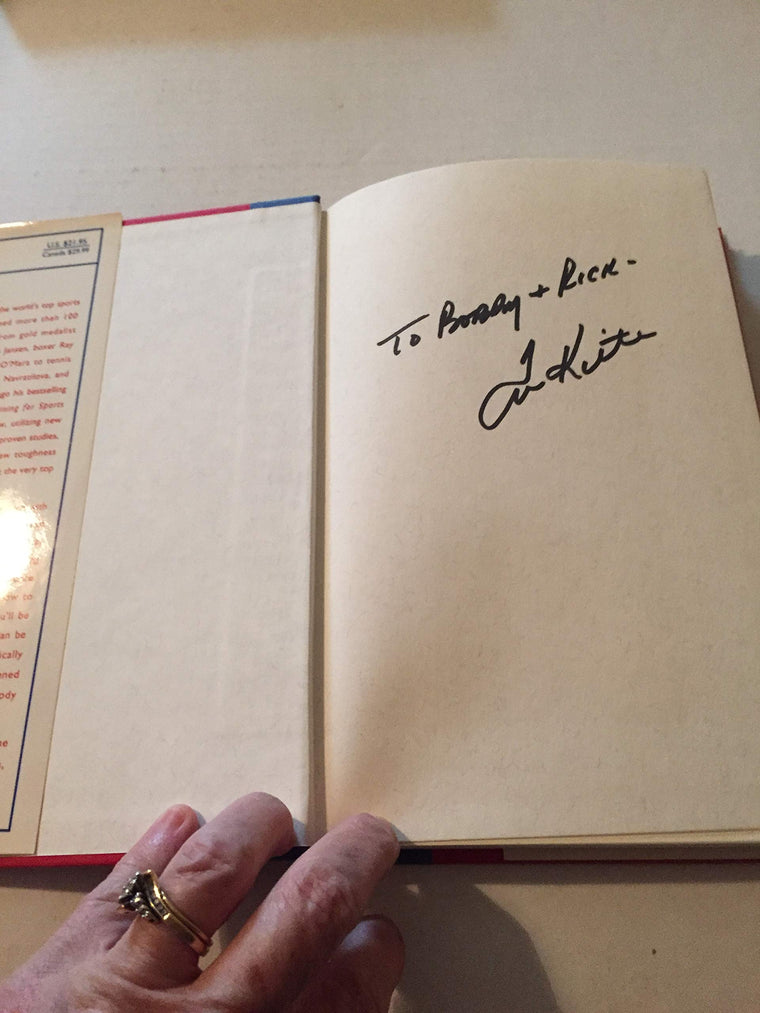 U.S. $21.95
Canada $29.99
he world's top sports
ed more than 100
rom gold medalist
Jansen, boxer Ray
O'Mara to tennis
Navratilova, and
go his bestselling
ning for Sports
w, utilizing new
proven studies,
ew toughness
the very top
ow to
u'll be
an be
ically
ned
ody
To Bobby + Rick -
Tom Kite